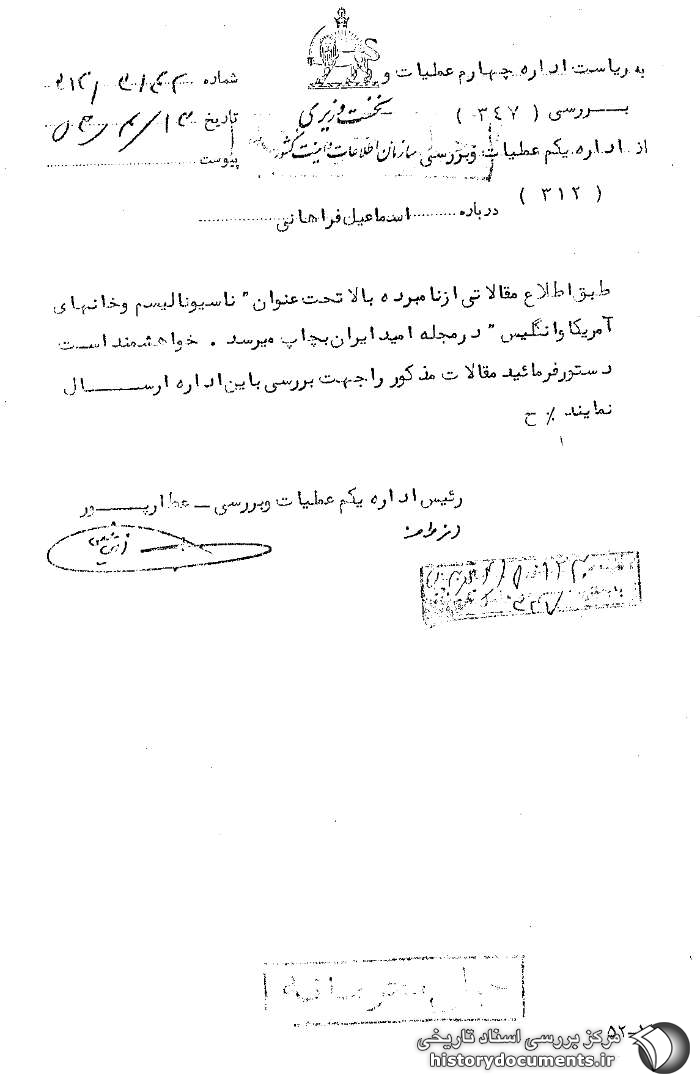 به ریاست اداره چهارم عملیات و
بــررسی ( ۳۴۷ )
نخست وزیری
از اداره یکم عملیات وبررسی سازمان اطلاعات وامنیت کشور
( ۳۱۲ )
شماره
تاریخ
پیوست
درباره اسماعیل فراهانی
طبق اطلاع مقالاتی ازنامبرده بالاتحت عنوان " ناسیونالیسم وخانهای
آمریکاوانگلیس " درمجله امیدایران بچاپ میرسد . خواهشمنداست
دستورفرمائید مقالات مذکور راجهت بررسی باین اداره ارســال
نمایند ٪ ح
رئیس اداره یکم عملیات وبررسی ــ عطارپــور
خیلی محرمانه
۵۲-
مرکز بررسی اسناد تاریخی
historydocuments.ir